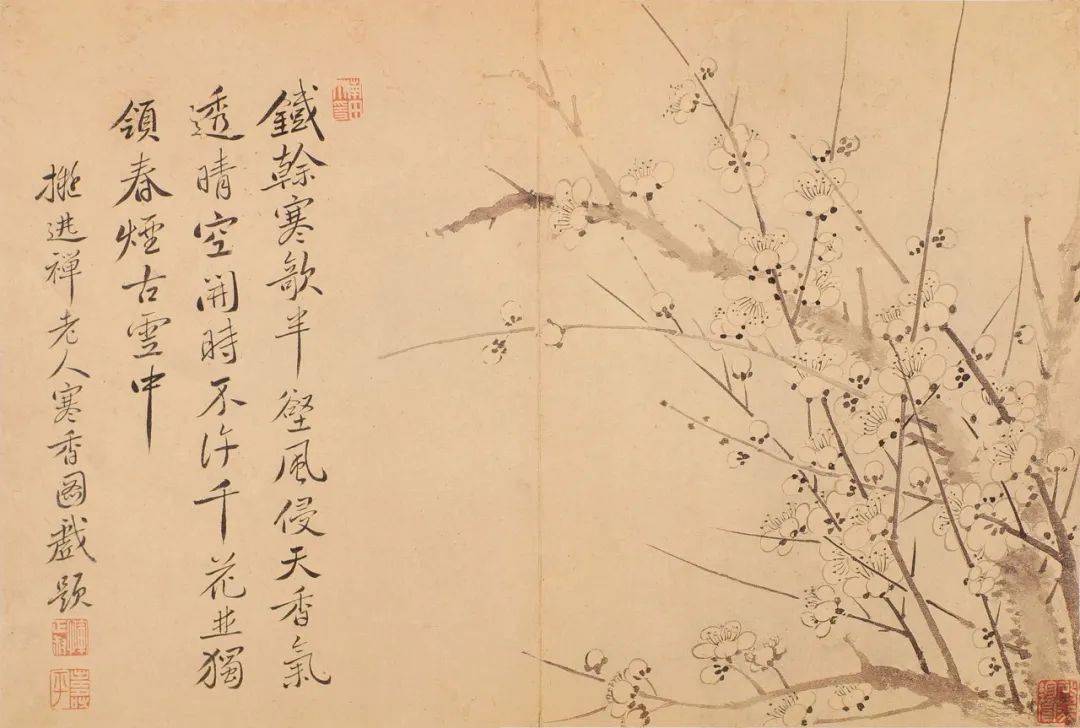 鐵榦寒欹半壁風侵天香氣
透晴空開時不許千花並獨
領春煙古雪中
擬逃禪老人寒香圖戲題
壽平